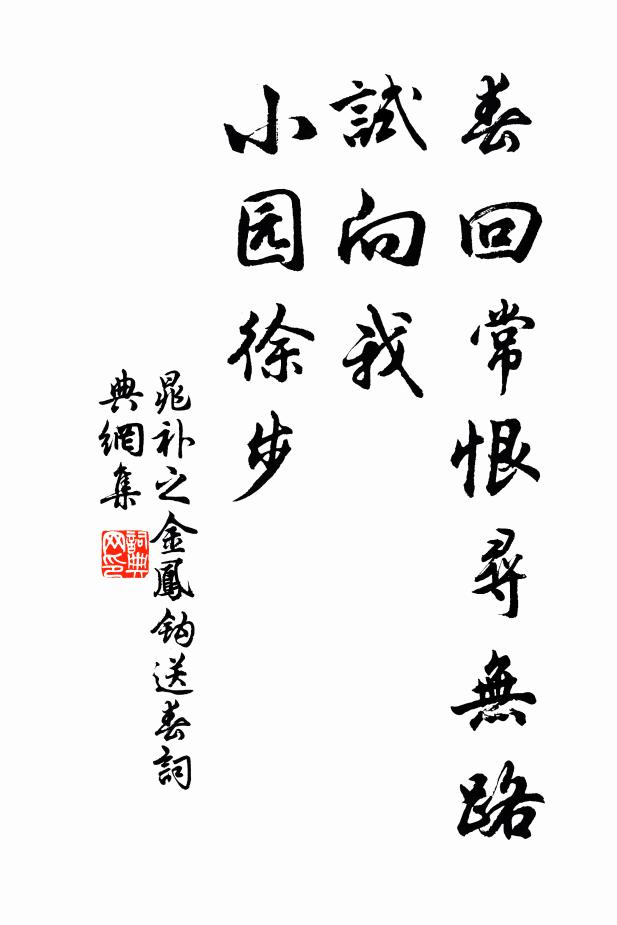 春回常恨尋無路
試向我
小园徐步
晁补之金鳳鈎送春詞
典網集
詞典网印